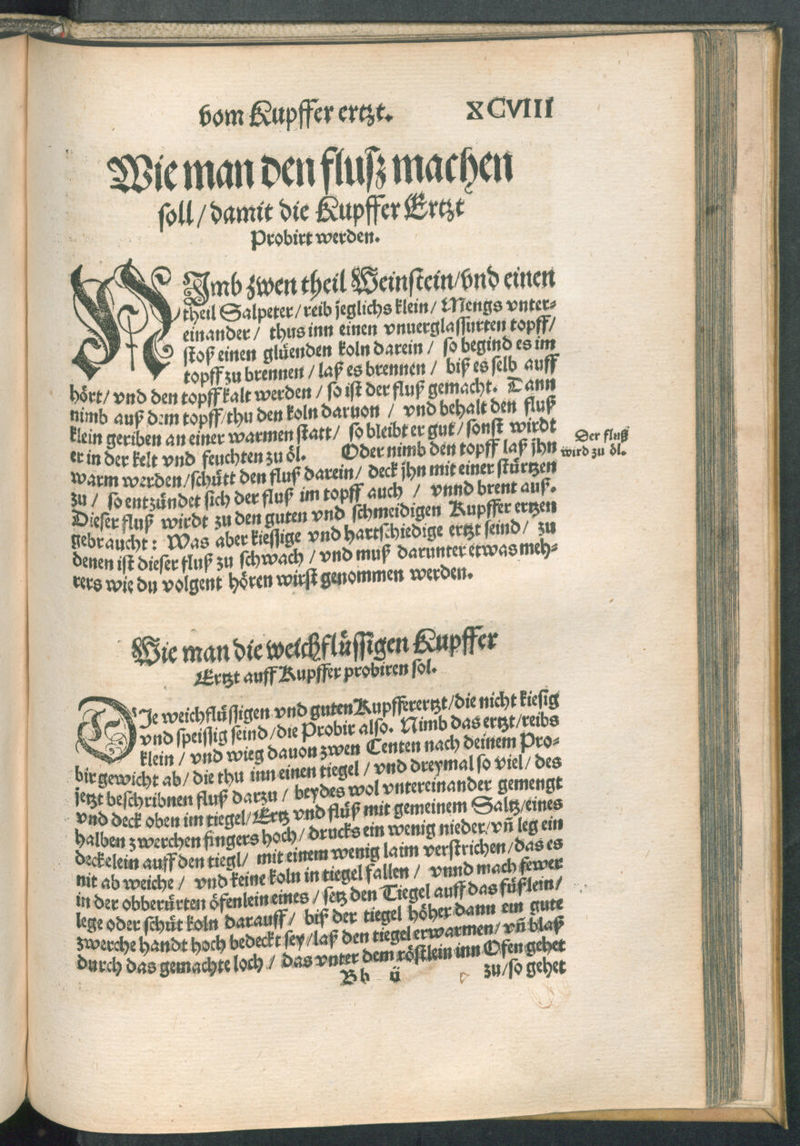 vom Kupffer ertzt. XCVIII
Wie man den flusz machen
soll / damit die Kupffer Ertzt
Probirt werden.
NImb zwen theil Weinstein / vnd einen
theil Salpeter / reib jeglichs klein / Mengs vnter-
einander / thus inn einen vnuerglassurten topff /
stoß einen glüenden koln darein / so begind es im
topff zu brennen / laß es brennen / biß es selb auff
hört / vnd den topff kalt werden / so ist der fluß gemacht. Dann
nimb auß dem topff / thu den koln daruon / vnd behalt den fluß
klein geriben an einer warmen statt / so bleibt er gut / sonst wirdt
er in der kelt vnd feuchten zu öl. Oder nimb den topff laß jhn
Der fluß
wird zu öl.
warm werden / schütt den fluß darein / deck jhn mit einer stürtzen
zu / so entzündet sich der fluß im topff auch / vnnd brent auß.
Dieser fluß wirdt zu den guten vnd schmeidigen Kupffer ertzen
gebraucht: Was aber kiessige vnd hartschiedige ertzt seind / zu
denen ist dieser fluß zu schwach / vnd muß darunter etwas meh-
rers wie du volgent hören wirst genommen werden.
Wie man die weichflüssigen Kupffer
Ertzt auff Kupffer probiren sol.
DIe weichflüssigen vnd guten Kupfferertzt / die nicht kiesig
vnd speissig seind / die Probir also. Nimb das ertzt / reibs
klein / vnd wieg dauon zwen Centen nach deinem Pro-
bir gewicht ab / die thu inn einen tiegel / vnd dreymal so viel / des
jetzt beschribnen fluß darzu / beydes wol vntereinander gemengt
vnd deck oben im tiegel / Ertz vnd flüß mit gemeinem Saltz / eines
halben zwerchen fingers hoch / drucks ein wenig nieder / vn̄ leg ein
deckelein auff den tiegl / mit einem wenig laim verstrichen / das es
nit ab weiche / vnd keine koln in tiegel fallen / vnnd mach fewer
in der obberürten öfenlein eines / setz den Tiegel auff das füßlein /
lege oder schüt koln darauff / biß der tiegel höher dann ein gute
zwerche handt hoch bedeckt sey / laß den tiegel erwarmen / vn̄ blaß
durch das gemachte loch / das vnter dem röstlein inn Ofen gehet
Bb ij zu / so gehet